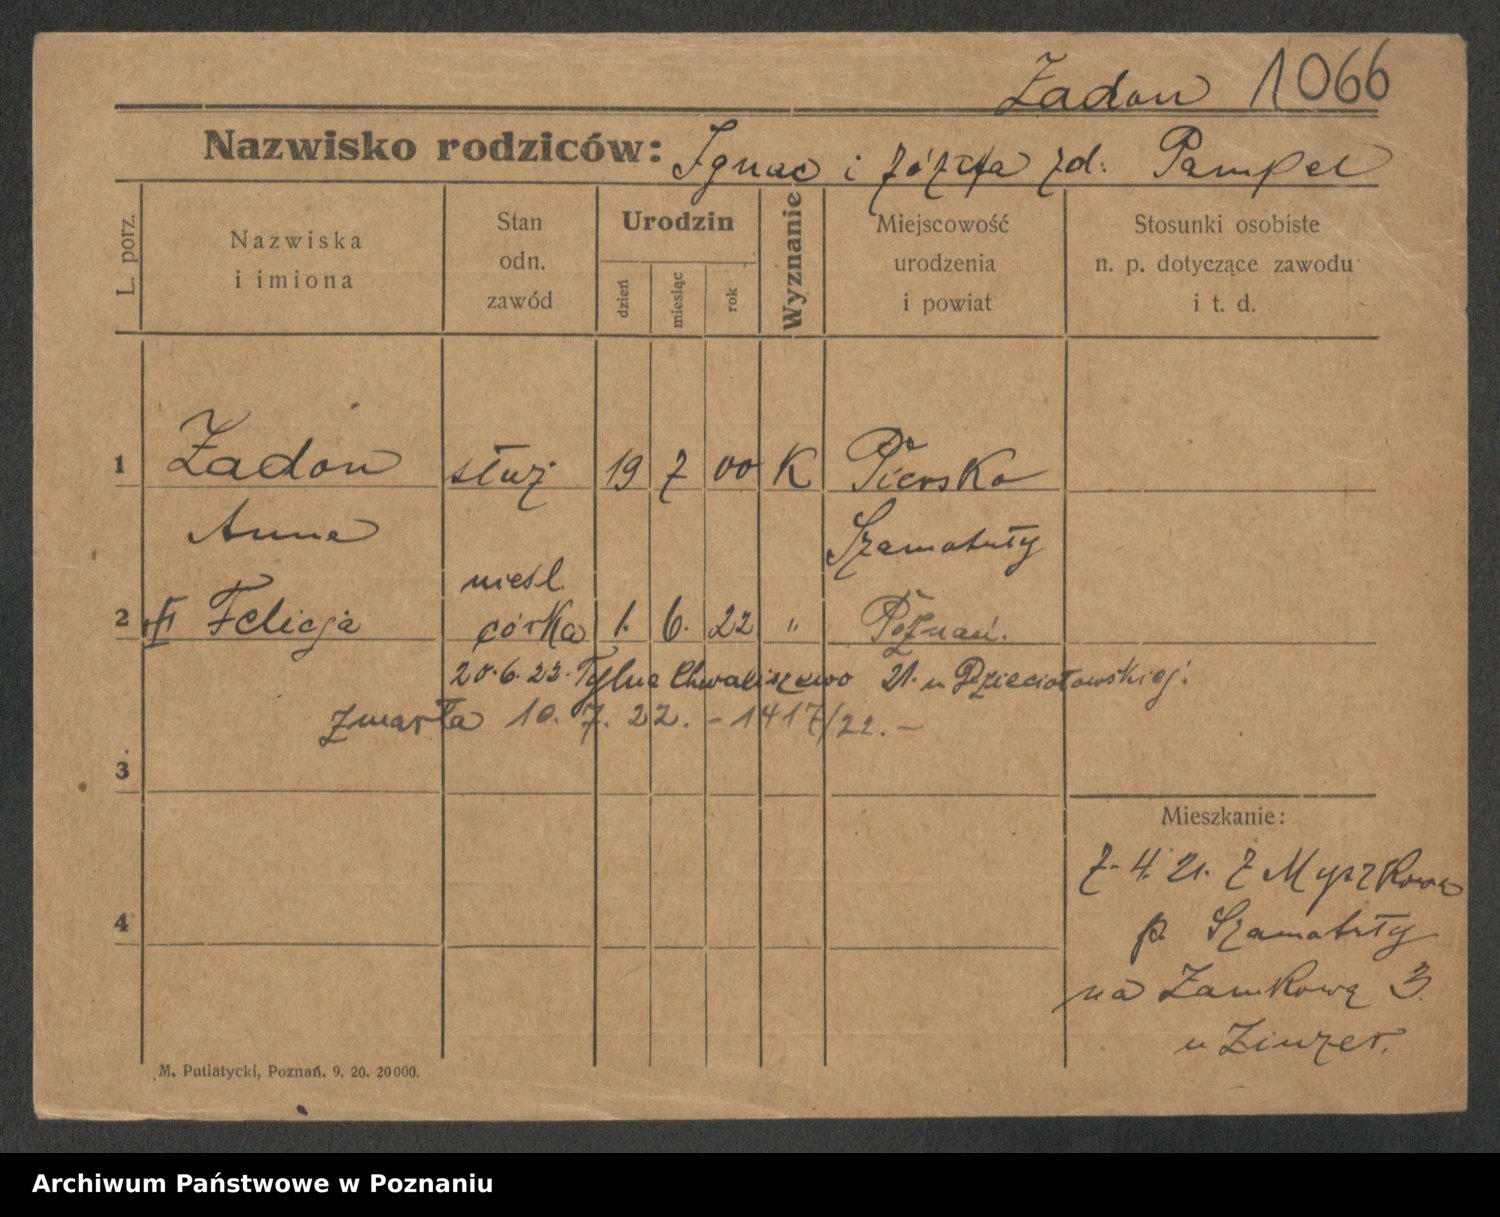 Żadon 1066
Nazwisko rodziców: Ignac i Józefa zd. Pampel
L. porz.
Nazwiska
i imiona
Stan
odn.
zawód
Urodzin
dzień
miesiąc
rok
Wyznanie
Miejscowość
urodzenia
i powiat
Stosunki osobiste
n. p. dotyczące zawodu
i t. d.
1 Żadon służ 19 7 00 K Piersko
Anna Szamotuły
nieśl
2 Felicja córka 1. 6. 22 " Poznań.
20.6.22. Tylne Chwaliszewo 21. u Dzieciołowskiej.
zmarła 10. 7. 22. - 1417/22. -
3
Mieszkanie:
7. 4. 21. z Myszkowa
4
p. Szamotuły
na Zamkową 3.
u Zinzer.
M. Putiatycki, Poznań. 9. 20. 20000.
Archiwum Państwowe w Poznaniu